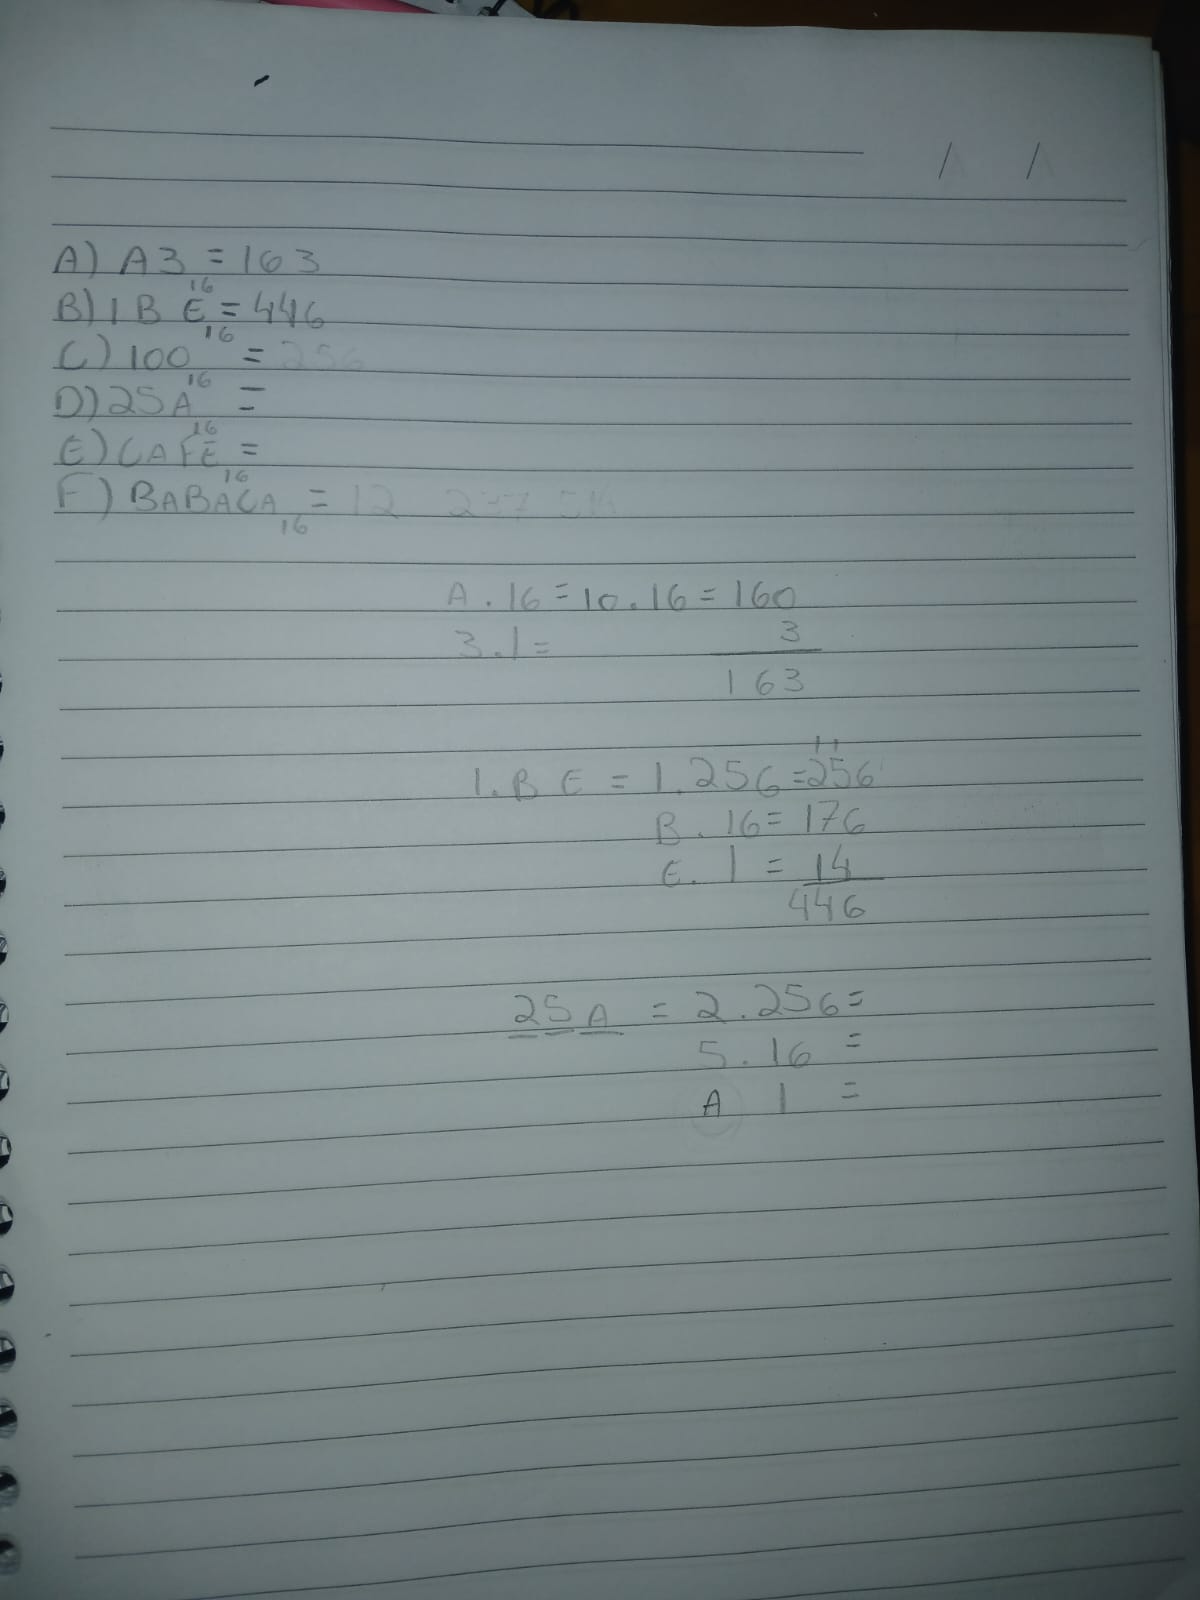 / /
A) A3₁₆ = 163
B) 1BE₁₆ = 446
C) 100₁₆ = 256
D) 25A₁₆ =
E) CAFE₁₆ =
F) BABACA₁₆ = 12 237
A . 16 = 10 . 16 = 160
3 . 1 = 3
163
1 1
1.B E = 1.256 = 256
B . 16 = 176
E . 1 = 14
446
25A = 2 . 256 =
5 . 16 =
A 1 =